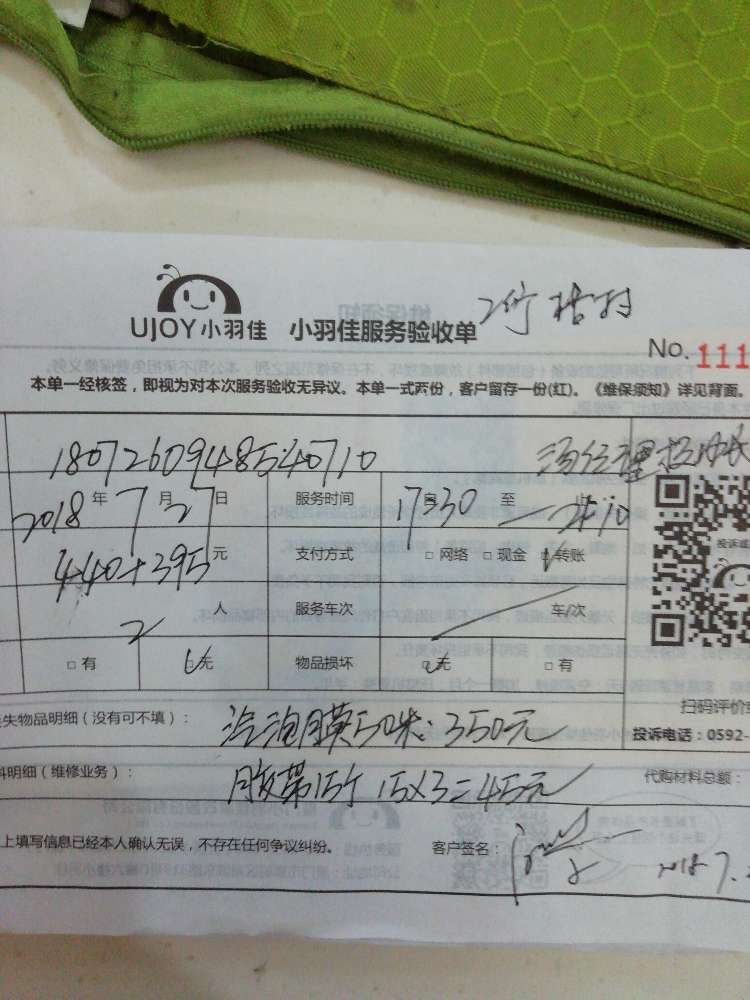 UJOY小羽佳 小羽佳服务验收单
No. 111
本单一经核签，即视为对本次服务验收无异议。本单一式两份，客户留存一份(红)。《维保须知》详见背面。
1807260948540710
2018年7月27日 服务时间 17:30 至
440+395元 支付方式 □网络 □现金 ☑转账
2人 服务车次 车/次
□有 ☑无 物品损坏 ☑无 □有
扫码评价
失物品明细（没有可不填）： 汽泡膜50米：350元
投诉电话：0592-
料明细（维修业务）： 胶带15个 15×3=45元 代购材料总额：
上填写信息已经本人确认无误，不存在任何争议纠纷。 客户签名： 2018.7.